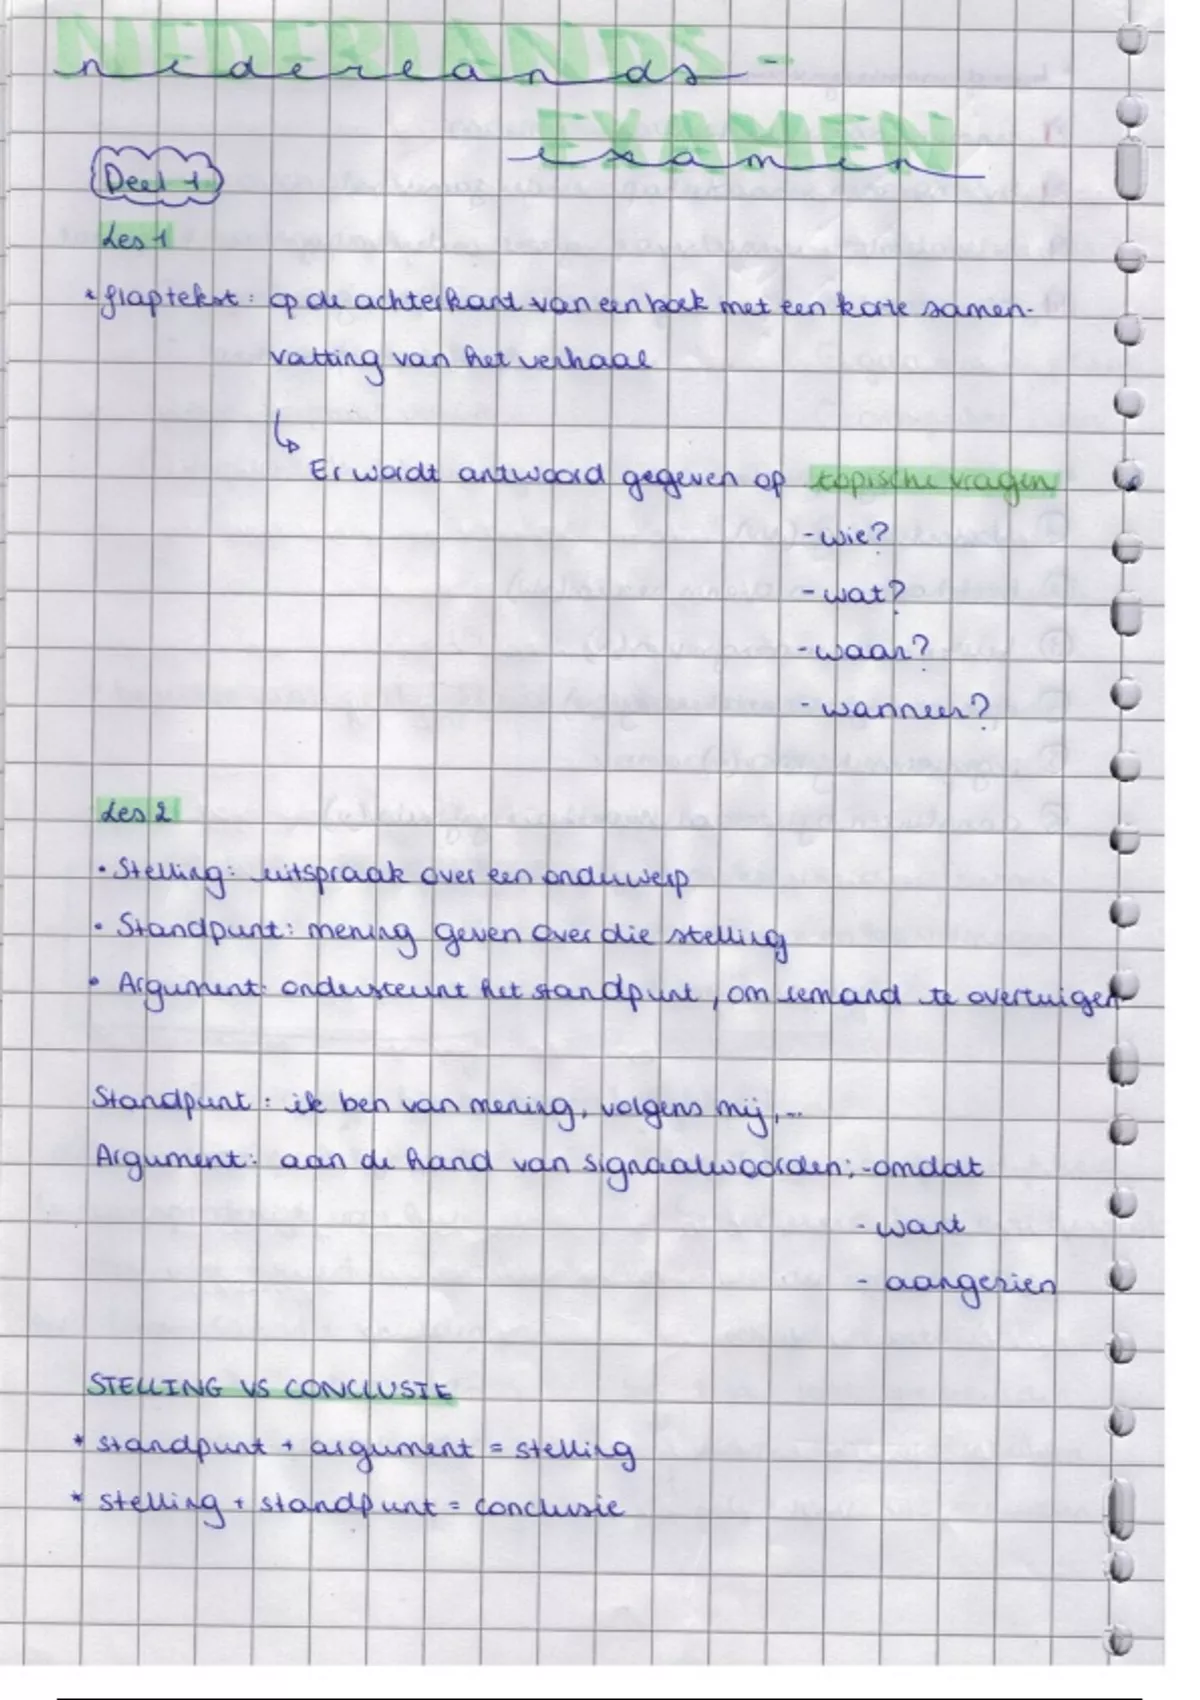 NEDERLANDS -
nederlands
EXAMEN
examen
Deel 1
Les 1
* flaptekst: op de achterkant van een boek met een korte samen-
vatting van het verhaal
↳ Er wordt antwoord gegeven op topische vragen
- wie?
- wat?
- waar?
- wanneer?
Les 2
• Stelling: uitspraak over een onderwerp
• Standpunt: mening geven over die stelling
• Argument: ondersteunt het standpunt, om iemand te overtuigen
Standpunt: ik ben van mening, volgens mij,...
Argument: aan de hand van signaalwoorden: - omdat
- want
- aangezien
STELLING VS CONCLUSIE
* standpunt + argument = stelling
* stelling + standpunt = conclusie